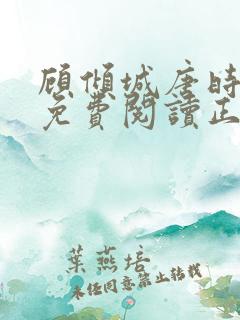 顾倾城唐时
免費閱讀正
葉燕培
未经同意禁止转载